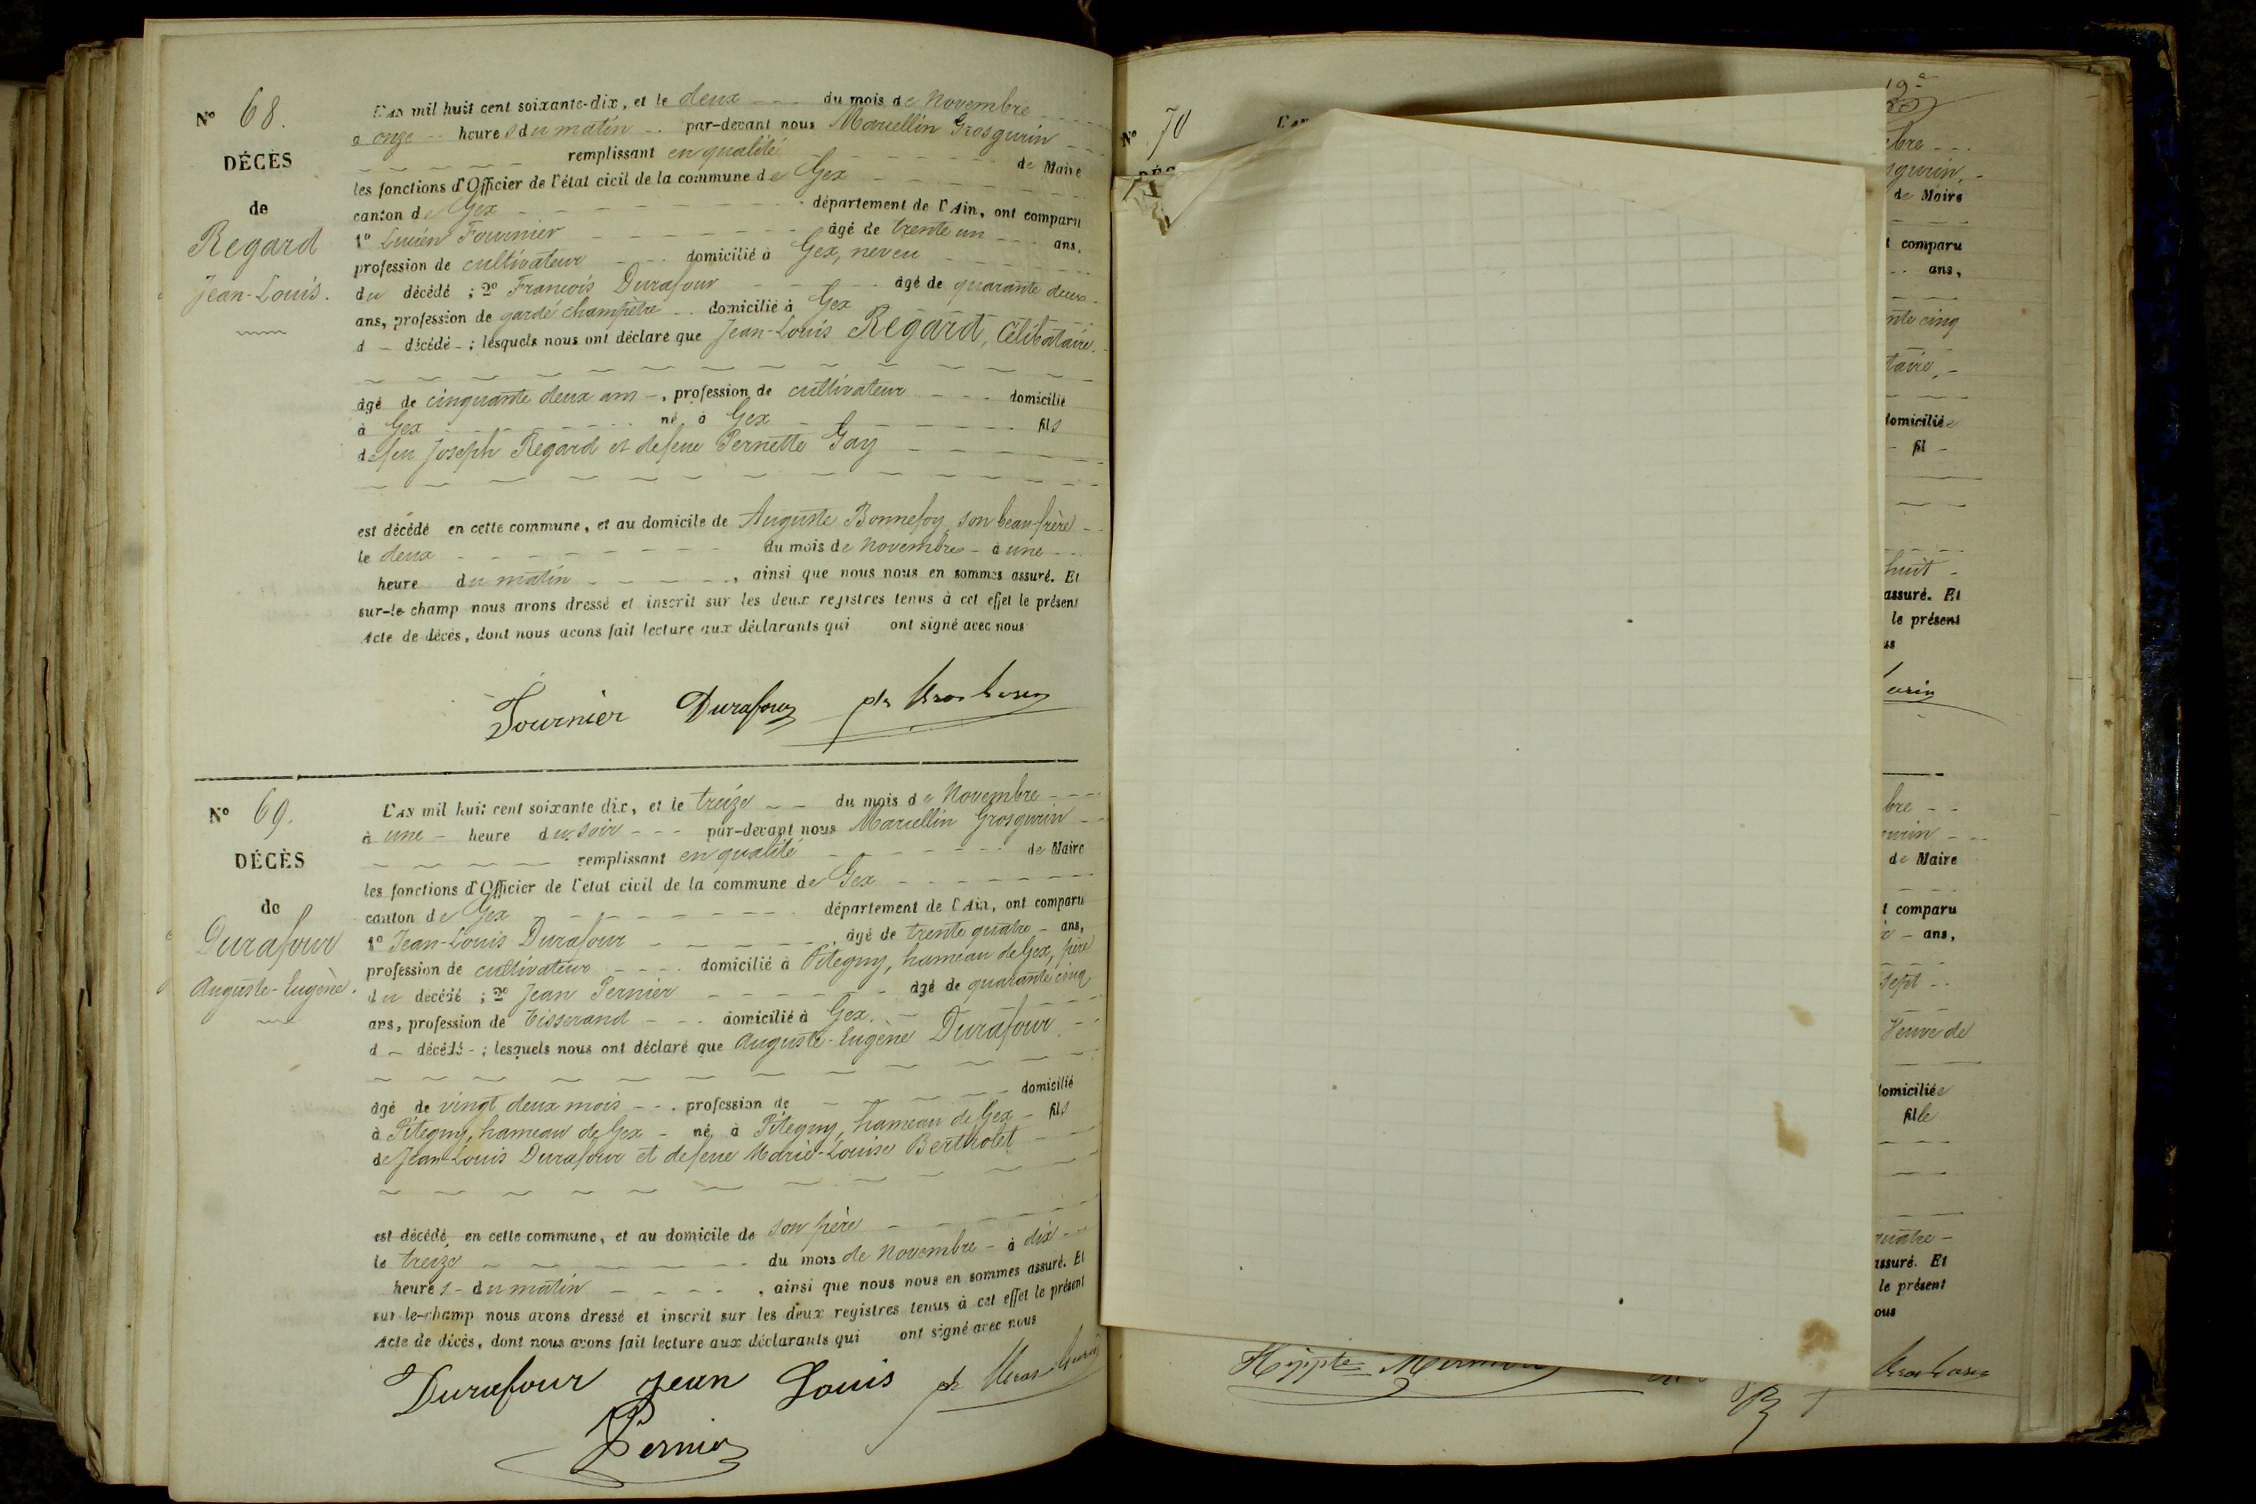 N° 68.
DÉCÈS
de
Regard
Jean-Louis.
L'AN mil huit cent soixante-dix, et le deux du mois de Novembre
à onze heures du matin par-devant nous Marcellin Grosgurin
remplissant en qualité de Maire
les fonctions d'Officier de l'état civil de la commune de Gex
canton de Gex département de l'Ain, ont comparu
1° Lucien Fournier âgé de trente un ans,
profession de cultivateur domicilié à Gex, neveu
du décédé ; 2° François Durafour âgé de quarante deux
ans, profession de garde champêtre domicilié à Gex
d - décédé - ; lesquels nous ont déclaré que Jean-Louis Regard, Célibataire.
âgé de cinquante deux ans -, profession de cultivateur domicilié
à Gex né à Gex fils
de feu Joseph Regard et de feue Pernette Gay
est décédé en cette commune, et au domicile de Auguste Bonnefoy, son beau-frère
le deux du mois de Novembre - à une
heure du matin , ainsi que nous nous en sommes assuré. Et
sur-le-champ nous avons dressé et inscrit sur les deux registres tenus à cet effet le présent
Acte de décès, dont nous avons fait lecture aux déclarants qui ont signé avec nous
Fournier Durafour
N° 69.
DÉCÈS
de
Durafour
Auguste-Eugène.
L'AN mil huit cent soixante dix, et le treize du mois de Novembre
à une heure du soir par-devant nous Marcellin Grosgurin
remplissant en qualité de Maire
les fonctions d'Officier de l'état civil de la commune de Gex
canton de Gex département de l'Ain, ont comparu
1° Jean-Louis Durafour âgé de trente quatre - ans,
profession de cultivateur domicilié à Pitegny, hameau de Gex, père
du décédé ; 2° Jean Pernier âgé de quarante cinq
ans, profession de Tisserand domicilié à Gex.
d - décédé - ; lesquels nous ont déclaré que Auguste-Eugène Durafour
âgé de vingt deux mois profession de domicilié
à Pitegny, hameau de Gex - né à Pitegny, hameau de Gex - fils
de Jean-Louis Durafour et de feue Marie-Louise Bertholet
est décédé en cette commune, et au domicile de son père
le treize du mois de Novembre - à dix
heures - du matin , ainsi que nous nous en sommes assuré. Et
sur-le-champ nous avons dressé et inscrit sur les deux registres tenus à cet effet le présent
Acte de décès, dont nous avons fait lecture aux déclarants qui ont signé avec nous
Durafour Jean Louis
Pernier
N° 70
bre
de Maire
comparu
ans,
nte cinq
taire,
domiciliée
fil
huit
assuré. Et
le présent
bre
de Maire
comparu
ans,
sept
Veuve de
domiciliée
fille
assuré. Et
le présent
ous
Hippte